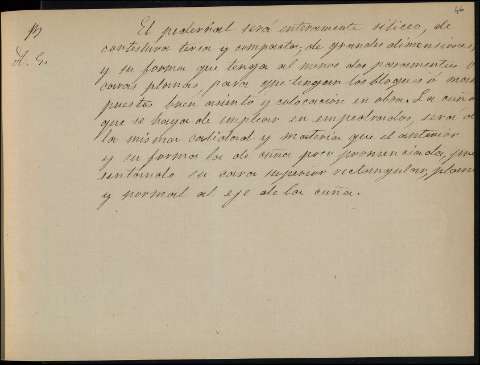 46
El pedernal será enteramente siliceo, de
contextura tersa y compacta, de grandes dimensiones,
A. G.
y su forma que tenga al menos dos paramentos ó
caras planas, para que tengan los bloques ó
puestas buen asiento y colocacion en obra. La cuña
que se haya de emplear en empedrados, será de
la misma calidad y materia que el anterior
y su forma la de cuña poco pronunciada, pre
sentando su cara superior rectangular, plana
y normal al eje de la cuña.